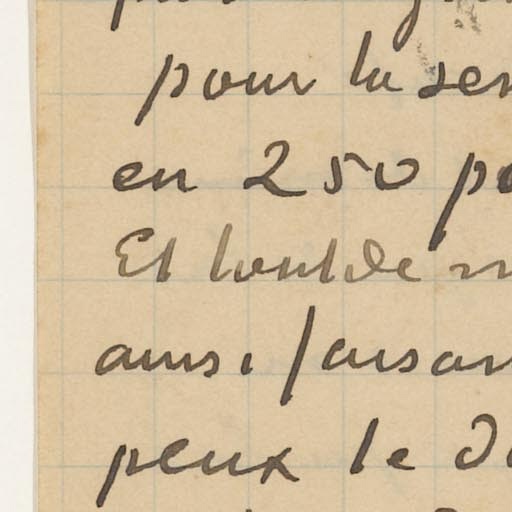 pour la ser
en 250 po
Et tout de m
ainsi faisan
peux le d